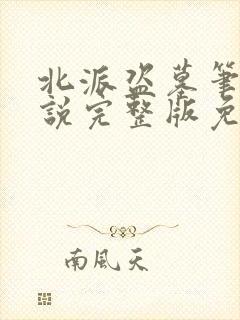 北派盗墓笔
説完整版免
南風天